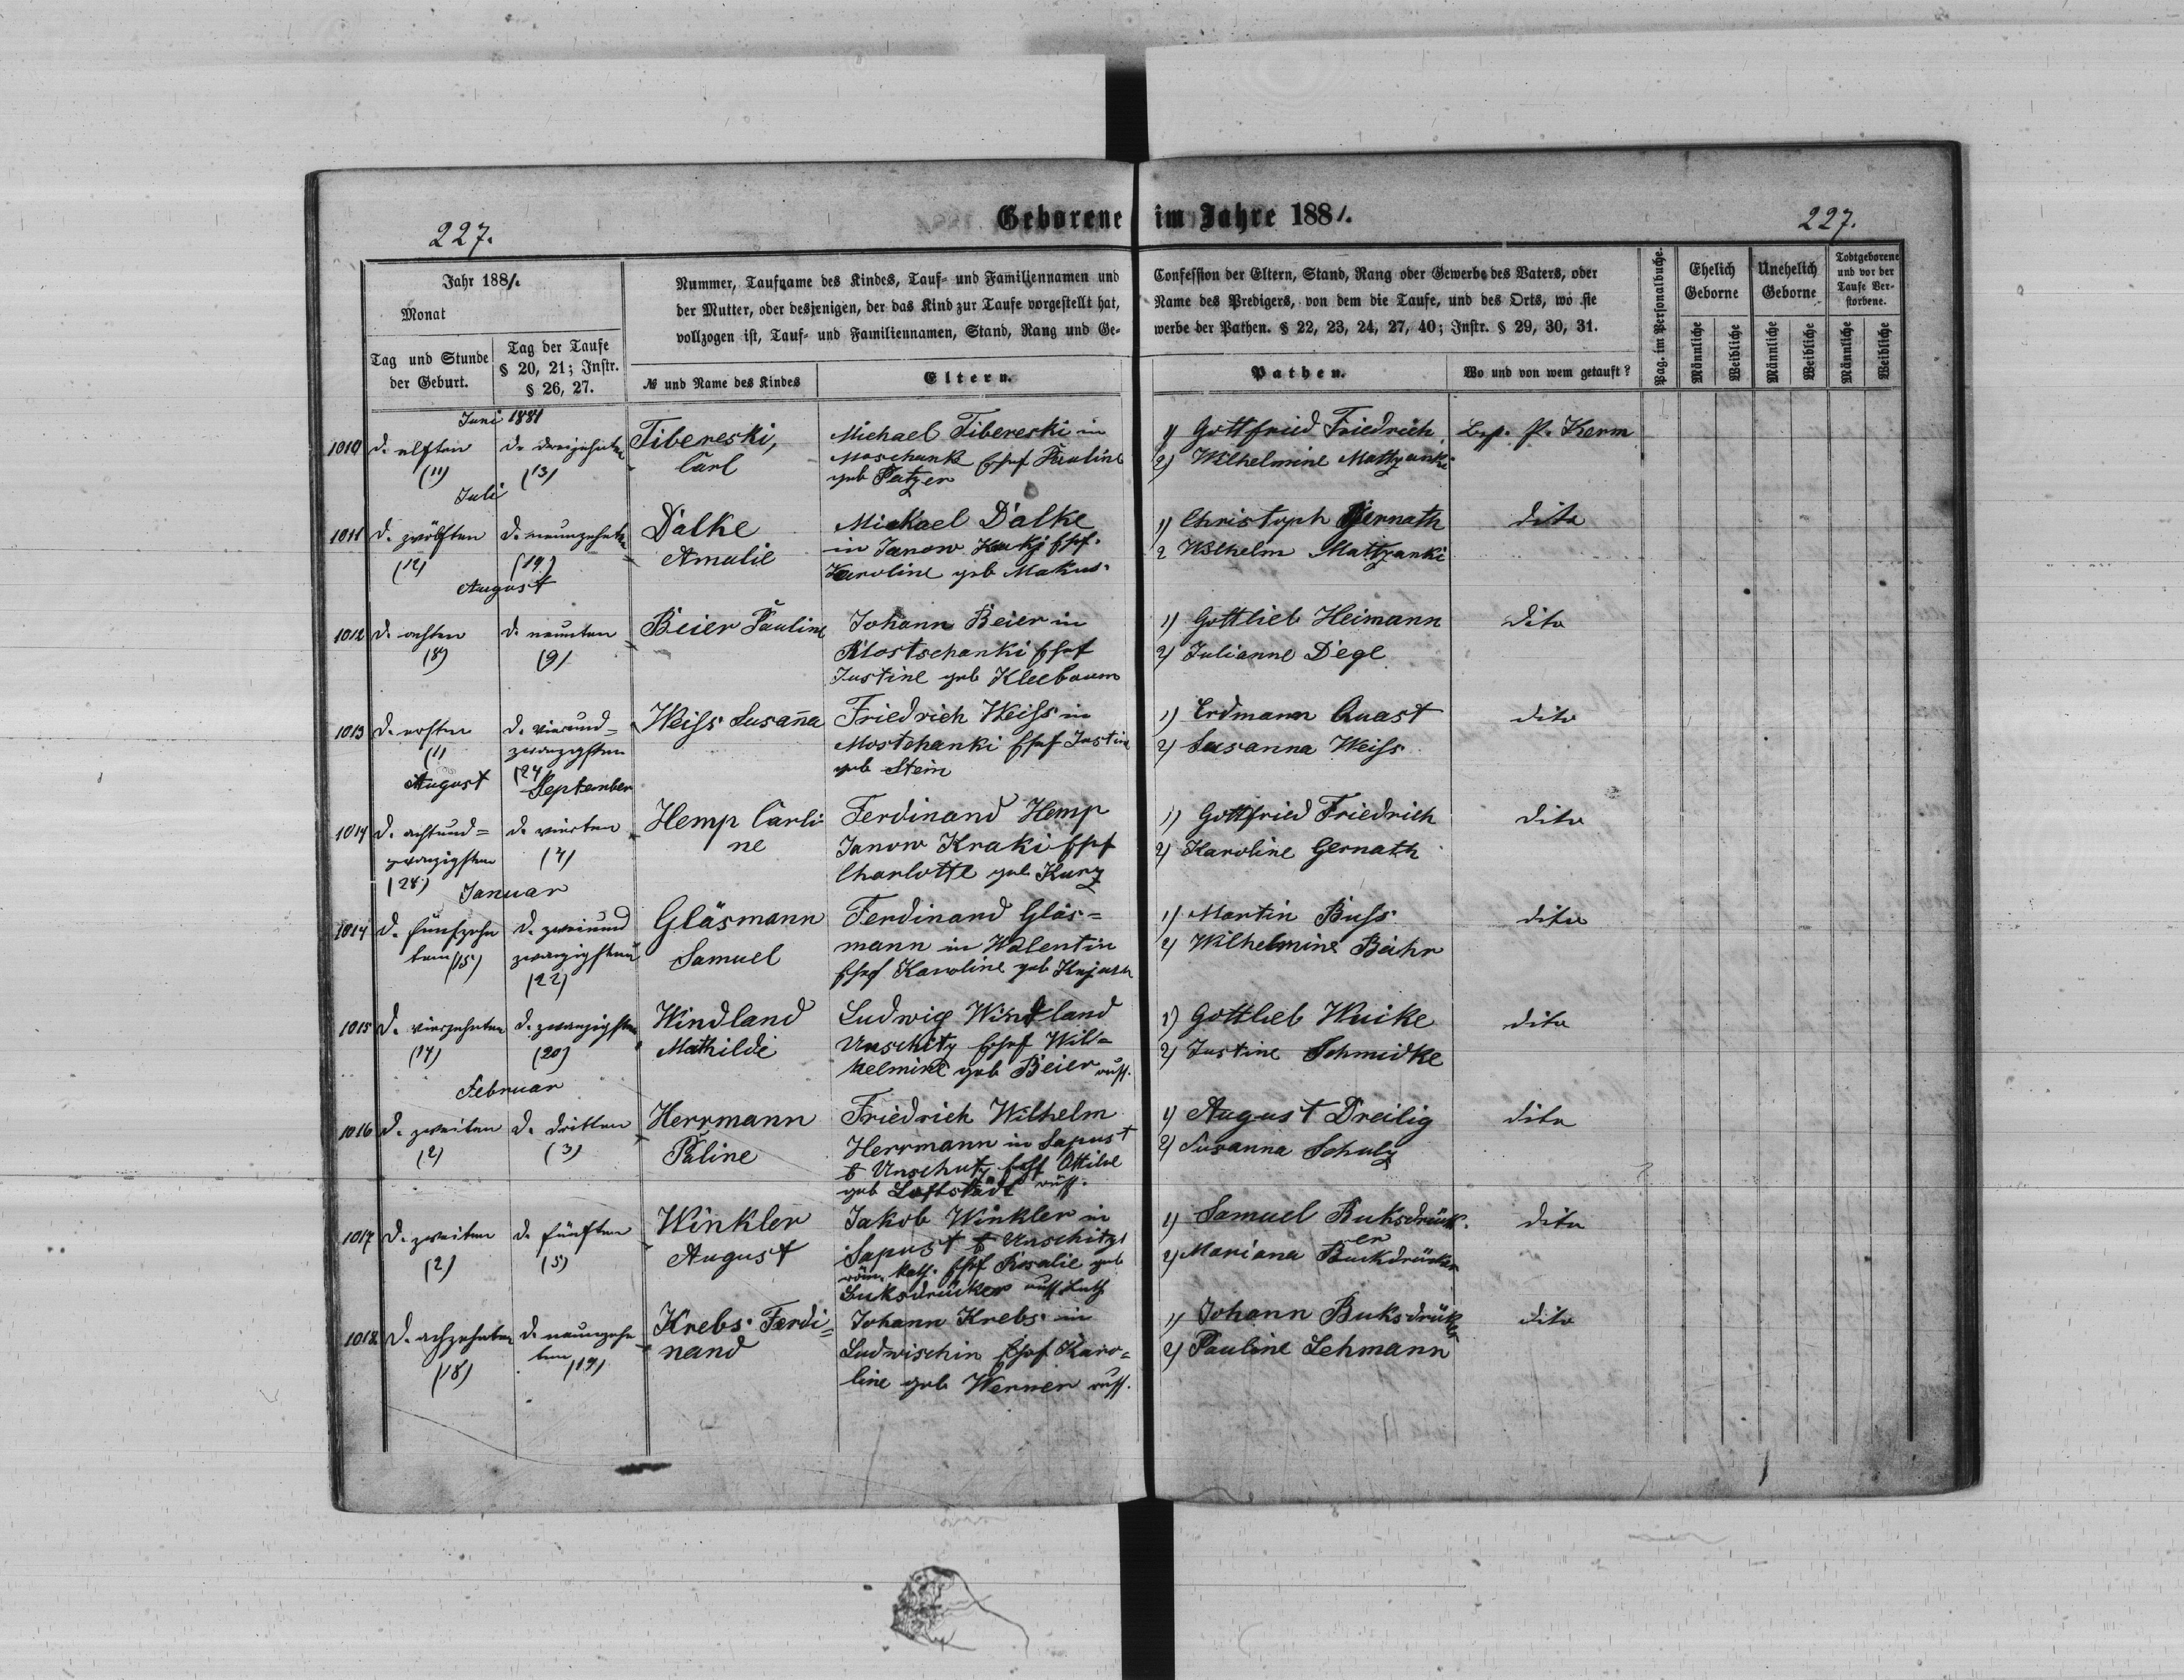 227.
Geborene im Jahre 1881.
227.
Jahr 1881.
Monat
Tag und Stunde
der Geburt.
Tag der Taufe
§ 20, 21; Instr.
§ 26, 27.
Nummer, Taufname des Kindes, Tauf- und Familiennamen und
der Mutter, oder desjenigen, der das Kind zur Taufe vorgestellt hat,
vollzogen ist, Tauf- und Familiennamen, Stand, Rang und Ge-
№ und Name des Kindes
Eltern.
Confession der Eltern, Stand, Rang oder Gewerbe des Vaters, oder
Name des Predigers, von dem die Taufe, und des Orts, wo sie
werbe der Pathen. § 22, 23, 24, 27, 40; Instr. § 29, 30, 31.
Pathen.
Wo und von wem getauft?
Pag. im Personalbuche.
Ehelich
Geborne
Unehelich
Geborne
Todtgeborene
und vor der
Taufe Ver-
storbene.
Männliche
Weibliche
Männliche
Weibliche
Männliche
Weibliche
Juni 1881
1010
d. elften
(11)
d. dreizehnten
(13)
Tibereski,
Carl
Michael Tibereski in
Ehef Pauline
geb Patzer
1) Gottfried Friedrich
2) Wilhelmine Mattzanki
P. Kerm
Juli
1011
d. zwölften
(12)
d. neunzehnten
(19)
Dalke
Amalie
Michael Dalke
in Janow Ehef.
Karoline geb Makus
1) Christoph Gernath
2 Wilhelm Mattzanki
dito
August
1012
d. achten
(8)
d. neunten
(9)
Beier Pauline
Johann Beier in
Mostschanki Ehef
Justine geb Kleebaum
1) Gottlieb Heimann
2) Julianne Dege
dito
1013
d. ersten
(1)
d. vierund-
zwanzigsten
(24
Weiss Susanna
Friedrich Weiss in
Mostchanki Ehef Justine
geb Stein
1) Erdmann Quast
2) Susanna Weiss
dito
August
September
1014
d. achtund-
zwanzigsten
(28)
d. vierten
(4)
Hemp Carli
ne
Ferdinand Hemp
Janow Kraki Ehef
Charlotte geb Kurz
1) Gottfried Friedrich
2) Karoline Gernath
dito
Januar
1014
d. fünfzehn
ten (15)
d. zweiund
zwanzigsten
(22)
Gläsmann
Samuel
Ferdinand Gläs-
mann in Walentin
Ehef Karoline geb
1) Martin Buss
2) Wilhelmine Bähr
dito
1015
d. vierzehnten
(14)
d. zwanzigsten
(20)
Windland
Mathilde
Ludwig Windland
Unschitz Ehef Wil-
helmine geb Beier russ.
1) Gottlieb Wuike
2) Justine Schmidke
dito
Februar
1016
d. zweiten
(2)
d. dritten
(3)
Herrmann
Paline
Friedrich Wilhelm
Herrmann in Sapust
b Unschutz Ehef Ottilie
geb Loftstädt russ.
1) August Dreilig
2) Susanna Schulz
dito
1017
d. zweiten
(2)
d. fünften
(5)
Winkler
August
Jakob Winkler in
Sapust b Unschitz
röm. Kath. Ehef Rosalie geb
Buksdrücker russ Luth
1) Samuel Buksdrück.
er
2) Mariana Buckdrücker
dito
1018
d. achzehnten
(18)
d. neunzehn
ten (19)
Krebs Ferdi-
nand
Johann Krebs in
Ludwischin Ehef Karo-
line geb Werner russ.
1) Johann Buksdrücker
2) Pauline Lehmann
dito